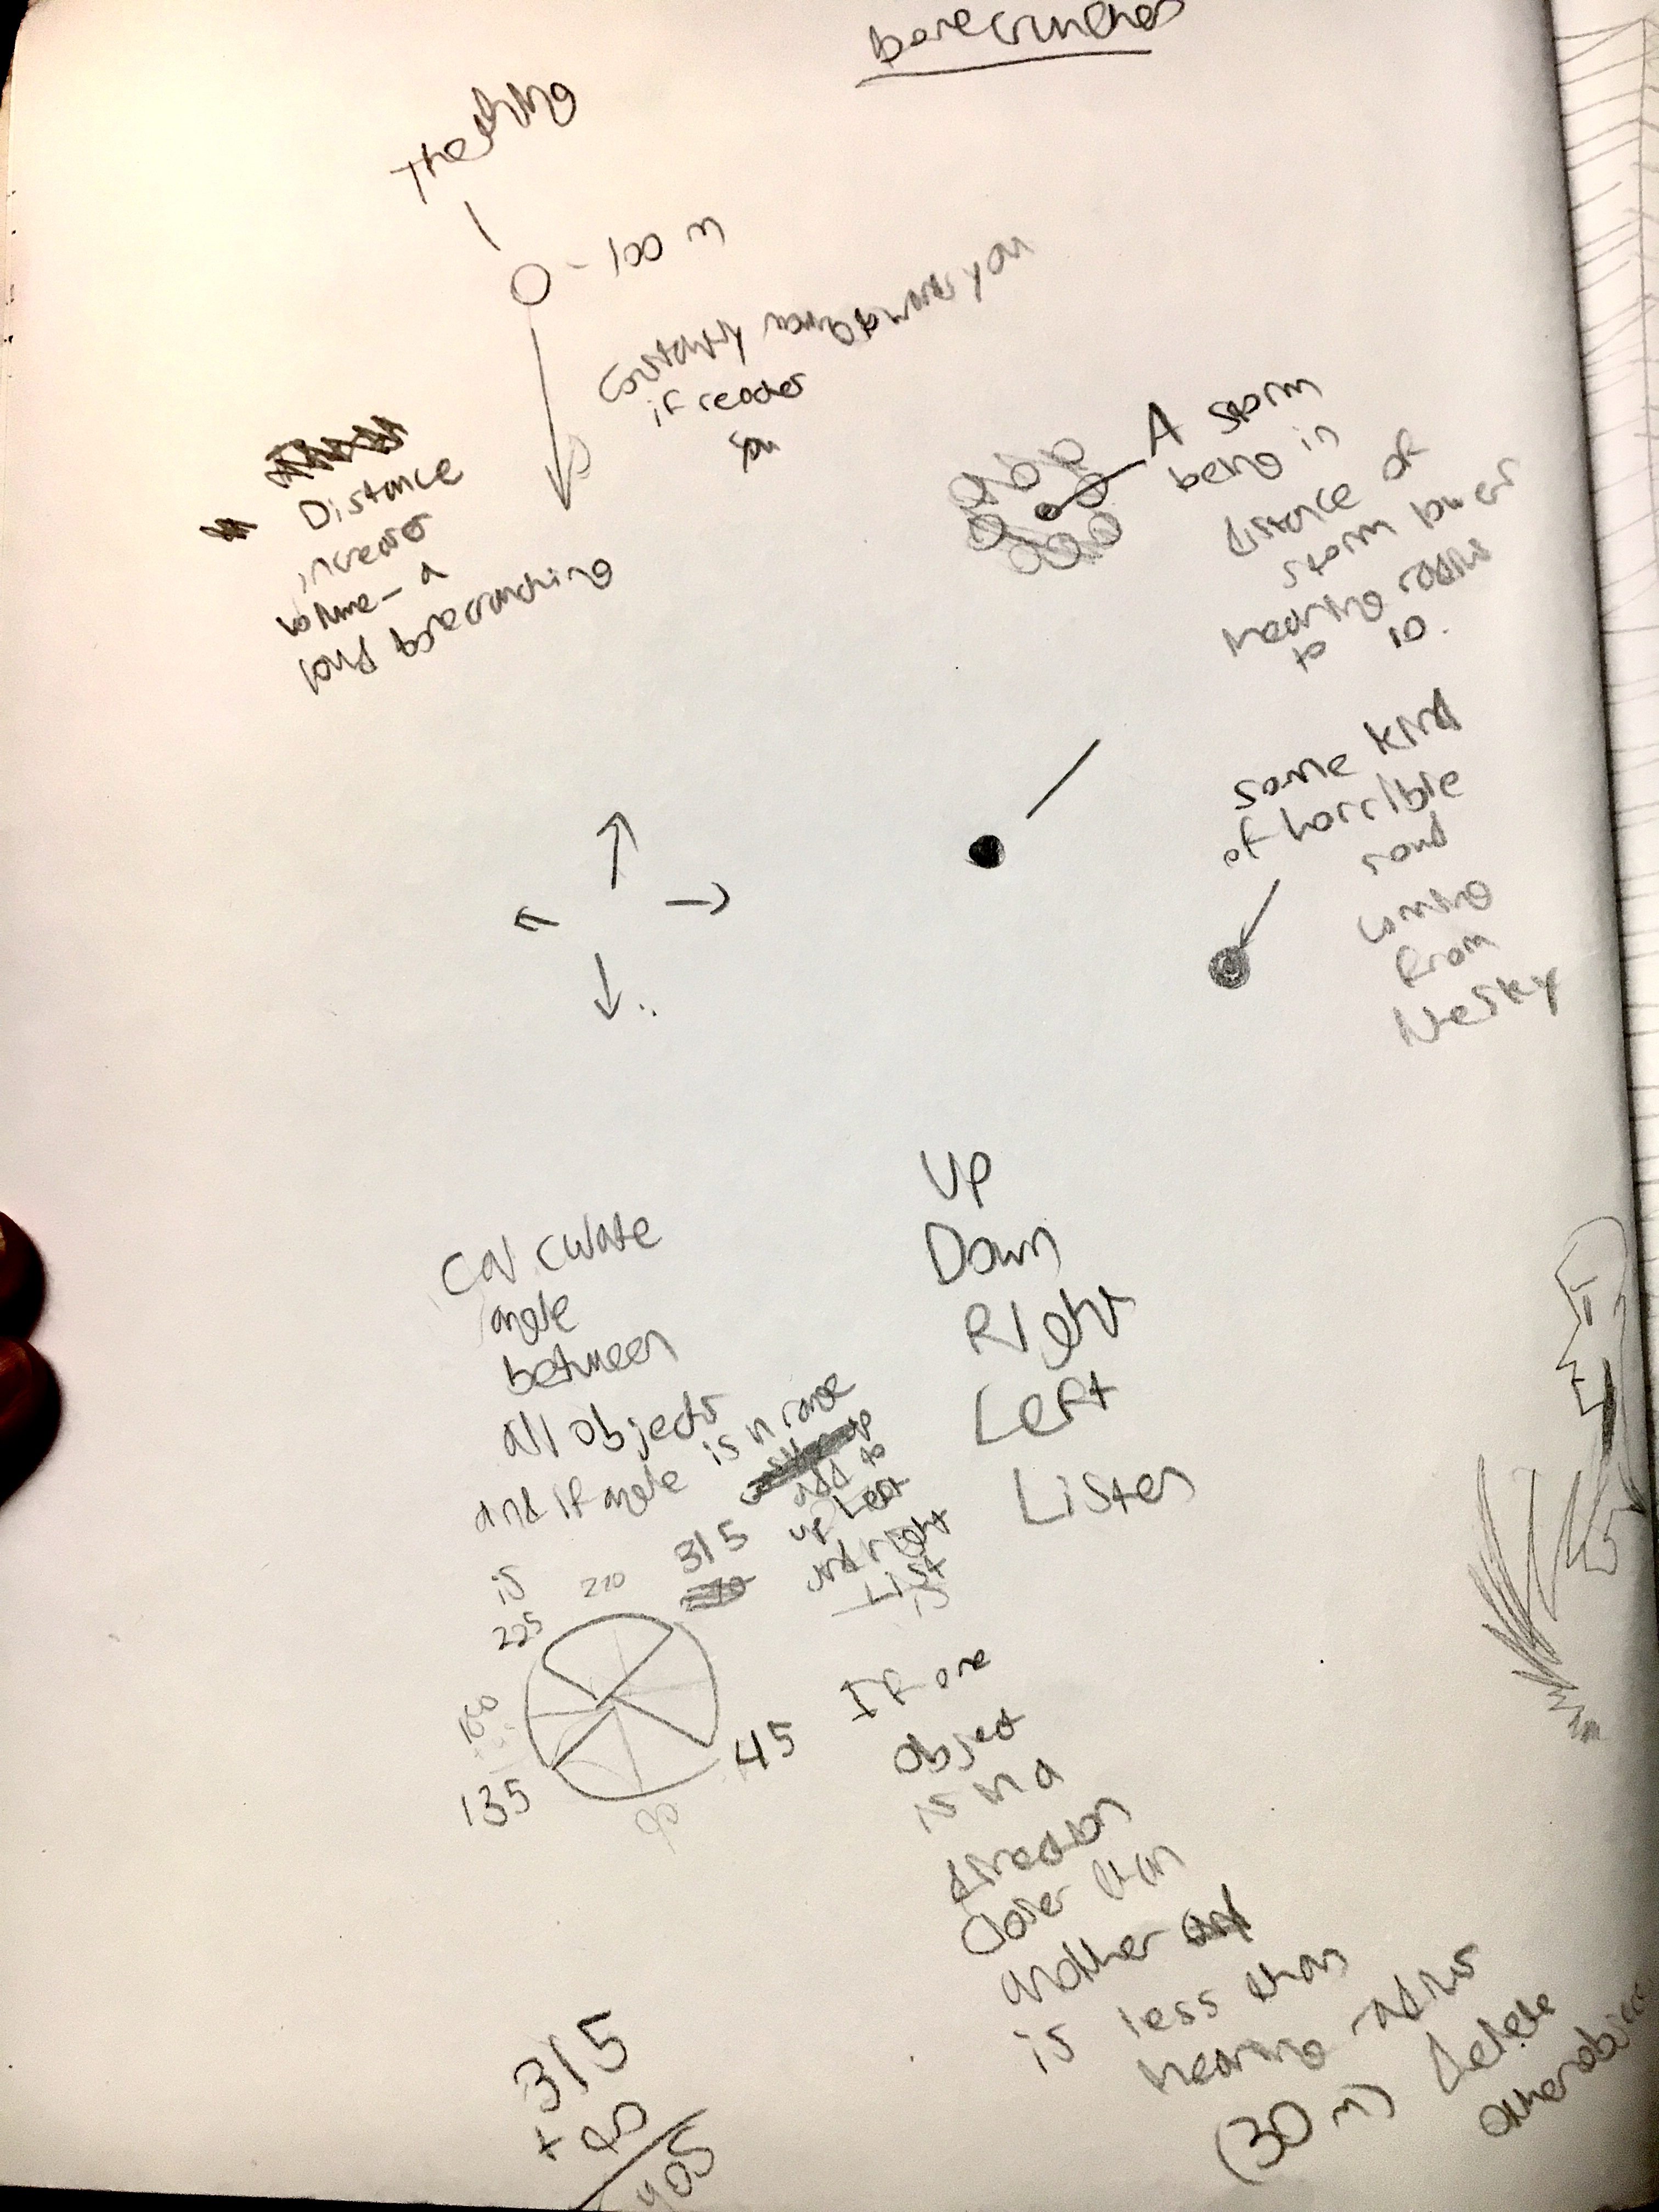 bonecrunches
The thing
- 100 m
Constantly moving towards you
if reaches
you
Distance
increases
volume - a
loud bonecrunching
A storm
being in
distance of
storm lowers
hearing radius
to 10.
some kind
of horrible
sound
coming
from
the sky
Up
Down
Right
Left
Listen
Calculate
angle
between
all objects
and if angle is in range
add to
up left
and right
List
is
225
270
315
180
135
90
45
If one
object
is in a
direction
closer than
another
is less than
hearing radius
(30 m) delete
other object
315
+ 90
405